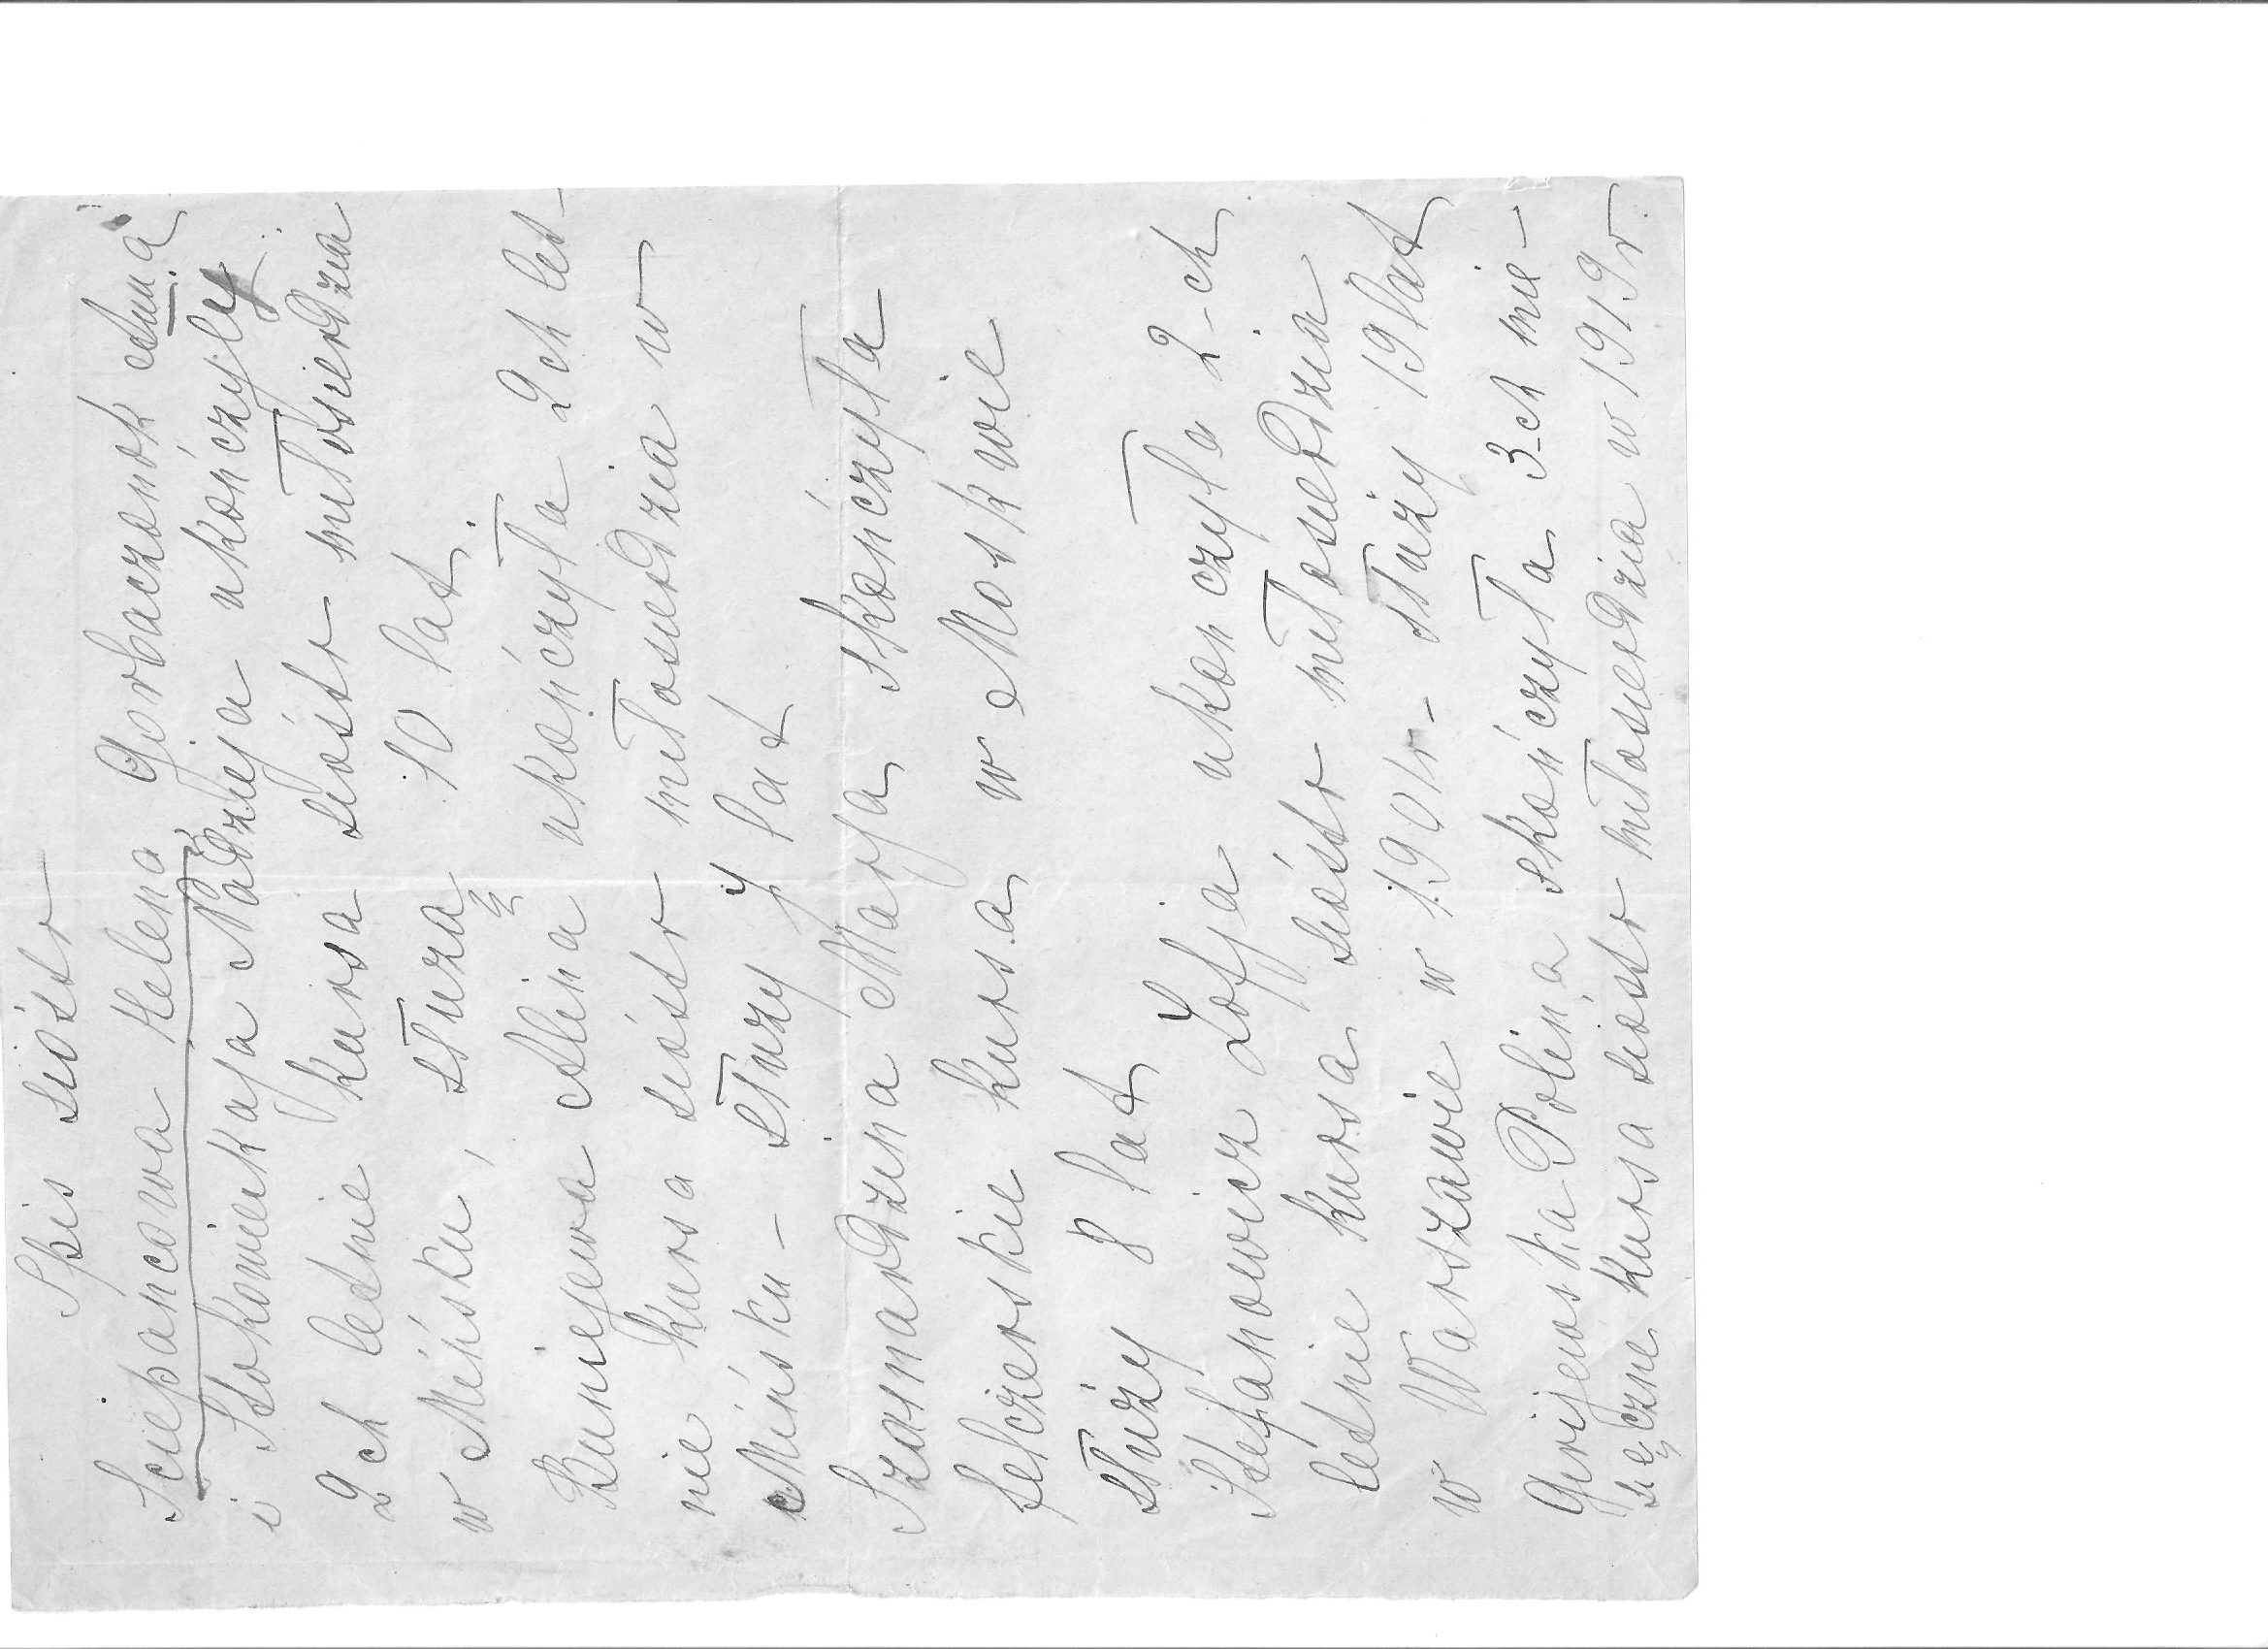 Spis sióstr
Sciepancowa Helena, Gorbaczonok Anna
i Stokowieckaja Nadzieja ukończyły
2ch letnie kursa sióstr miłosierdzia
w Mińsku, służą 10 lat.
Buniejewa Alina ukończyła 2ch let-
nie kursa sióstr miłosierdzia w
Mińsku – służy 7 lat
Szamardzina Marja skończyła
felczerskie kursa w Moskwie
służy 8 lat
Stefanowicz Zofja ukonczyła 2-ch
letnie kursa sióstr miłosierdzia
w Warszawie w 1901r – służy 19 lat
Gryjewska Polina skończyła 3-ch mie-
sięczne kursa siostr miłosierdzia w 1919 r.